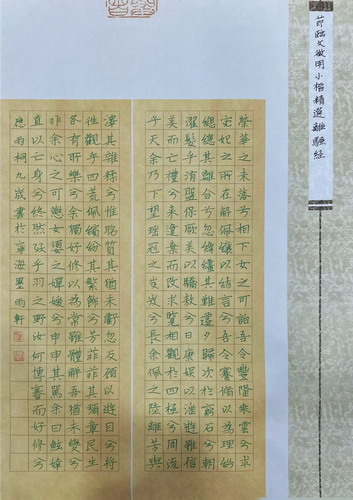 節臨文徵明小楷精選離騷經
榮華之未落兮相下女之可詒吾令豐隆乘雲兮求
宓妃之所在解佩纕以結言兮吾令蹇脩以為理紛
總總其離合兮忽緯繣其難遷夕歸次於窮石兮朝
濯髮乎洧盤保厥美以驕敖兮日康娛以淫遊雖信
美而亡禮兮來違棄而改求覽相觀於四極兮周流
乎天余乃下望瑤冠之岌岌兮長余佩之陸離芳與
澤其雜糅兮惟昭質其猶未虧忽反顧以遊目兮將
往觀乎四荒佩繽紛其繁飾兮芳菲菲其彌章民生
各有所樂兮余獨好修以為常雖體解吾猶未變兮
非余心之可懲女嬃之嬋媛兮申申其罵余曰鯀婞
直以亡身兮終然殀乎羽之野汝何博謇而好修兮
雨桐九歲書於寧海墨雨軒